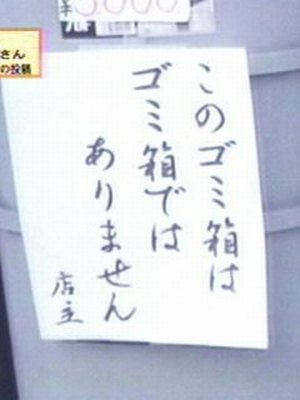 3000
さん
の投稿
このゴミ箱は
ゴミ箱では
ありません
店主